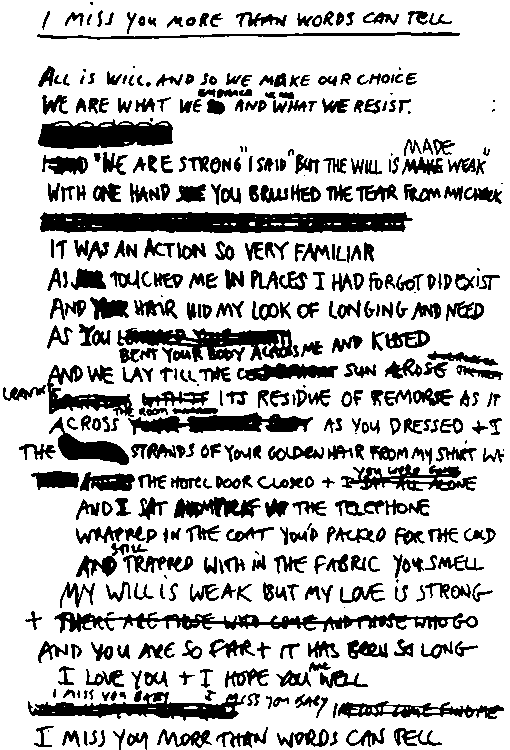 I MISS YOU MORE THAN WORDS CAN TELL
ALL IS WILL. AND SO WE MAKE OUR CHOICE
EMBRACE
WE ARE WHAT WE AND WHAT WE RESIST.
MADE
"WE ARE STRONG" I SAID "BUT THE WILL IS MAKE WEAK"
WITH ONE HAND YOU BRUSHED THE TEAR FROM MY CHEEK
IT WAS AN ACTION SO VERY FAMILIAR
AS TOUCHED ME IN PLACES I HAD FORGOT DID EXIST
AND YOUR HAIR HID MY LOOK OF LONGING AND NEED
AS YOU
BENT YOUR BODY ACROSS ME AND KISSED
AND WE LAY TILL THE SUN AROSE
ITS RESIDUE OF REMORSE AS IT
THE ROOM
ACROSS AS YOU DRESSED + I
THE STRANDS OF YOUR GOLDEN HAIR FROM MY SHIRT
YOU WERE GONE
THE HOTEL DOOR CLOSED + I SAT ALL ALONE
AND I SAT THE TELEPHONE
WRAPPED IN THE COAT YOU'D PACKED FOR THE COLD
STILL
AND TRAPPED WITH IN THE FABRIC YOU SMELL
MY WILL IS WEAK BUT MY LOVE IS STRONG
+ THERE ARE THOSE WHO COME AND THOSE WHO GO
AND YOU ARE SO FAR + IT HAS BEEN SO LONG
ARE
I LOVE YOU + I HOPE YOU WELL
I MISS YOU BABY I MISS YOU BABY
I MISS YOU MORE THAN WORDS CAN TELL